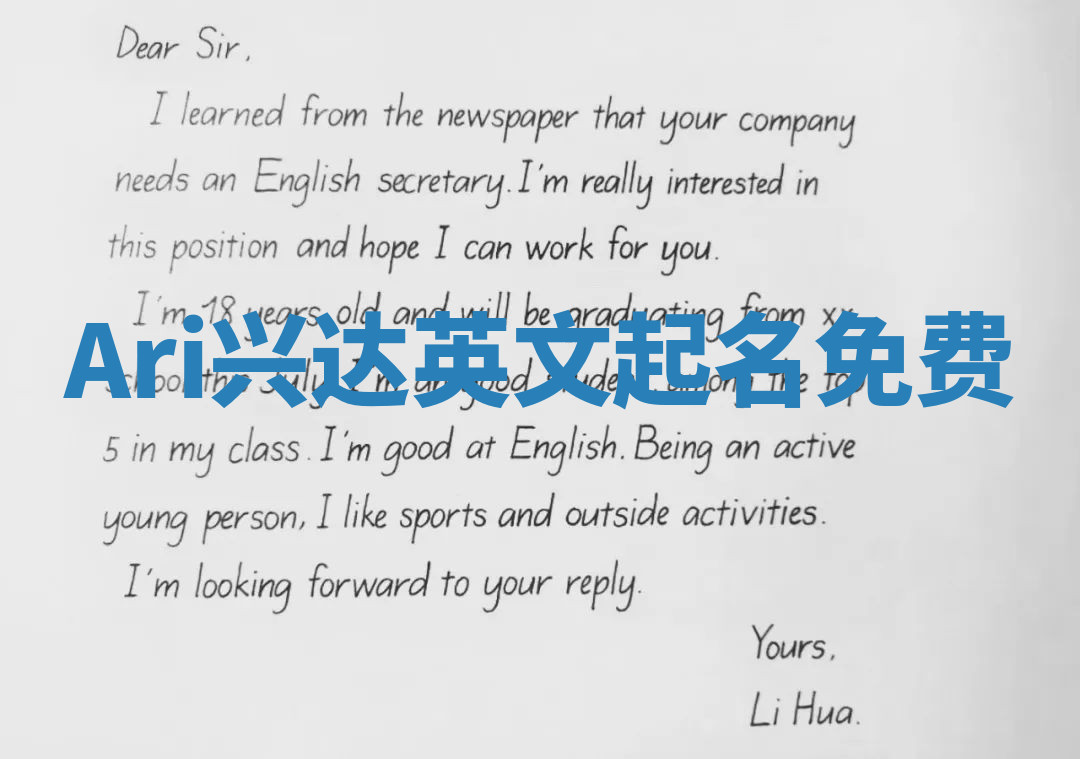 Dear Sir,
I learned from the newspaper that your company
needs an English secretary. I'm really interested in
this position and hope I can work for you.
I'm 18 years old and will be graduating from xx
Ari兴达英文起名免费
school this July. I'm a good student among the top
5 in my class. I'm good at English. Being an active
young person, I like sports and outside activities.
I'm looking forward to your reply.
Yours,
Li Hua.